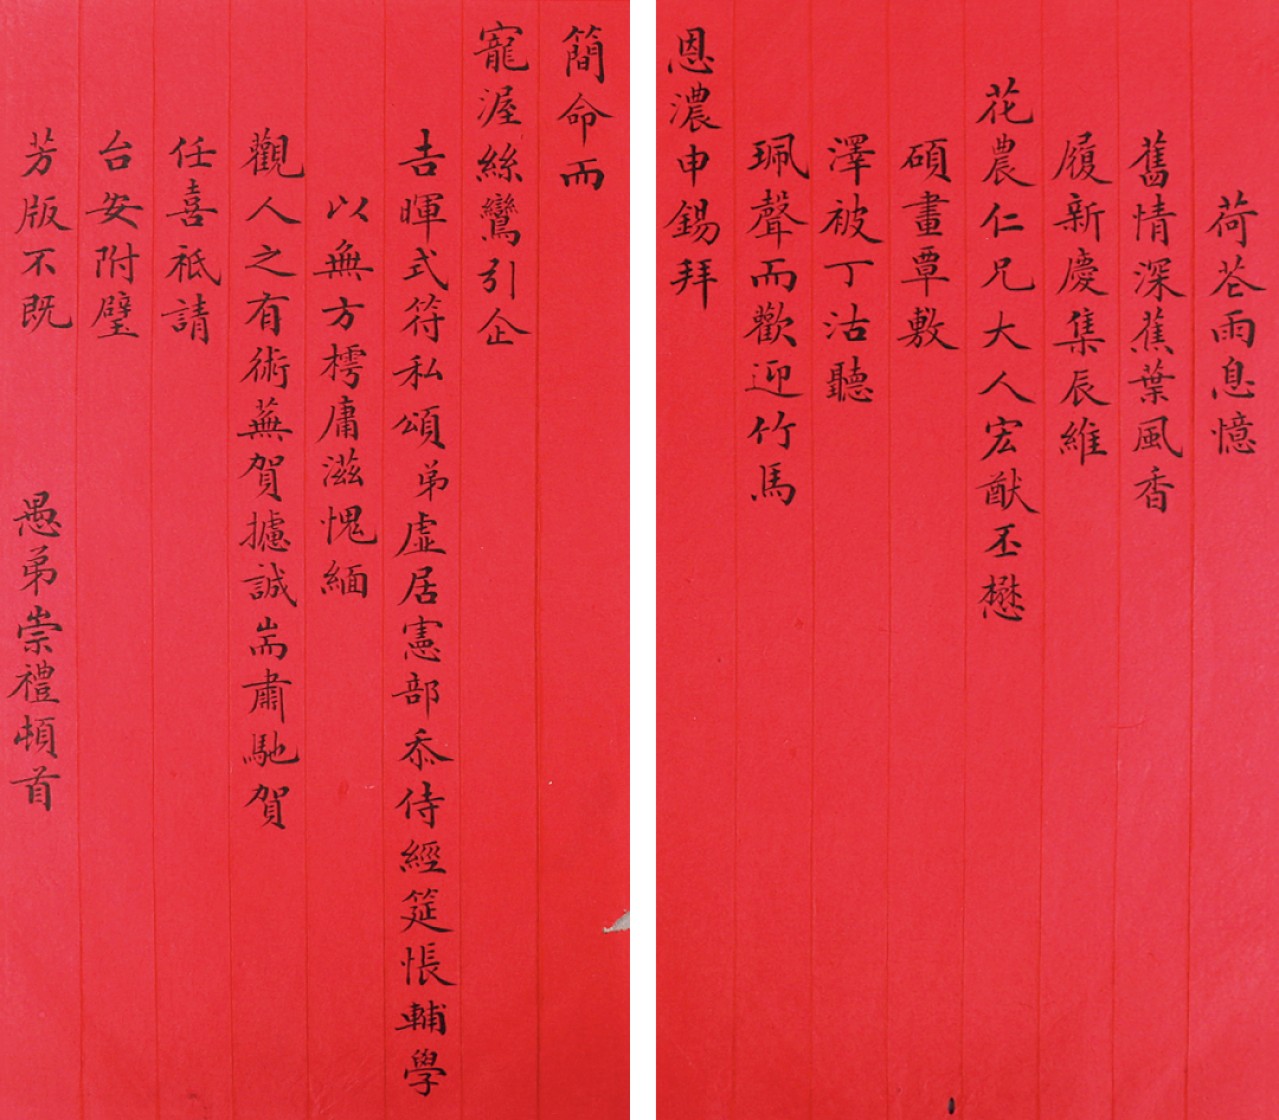 荷芲雨息憶
舊情深蕉葉風香
履新慶集辰維
花農仁兄大人宏猷丕懋
碩畫覃敷
澤被丁沽聽
珮聲而歡迎竹馬
恩濃申錫拜
簡命而
寵渥絲鸞引企
吉暉式符私頌弟虛居憲部忝侍經筵悵輔學
以無方樗庸滋愧緬
觀人之有術蕪賀攄誠耑肅馳賀
任喜祗請
台安附璧
芳版不既
愚弟崇禮頓首